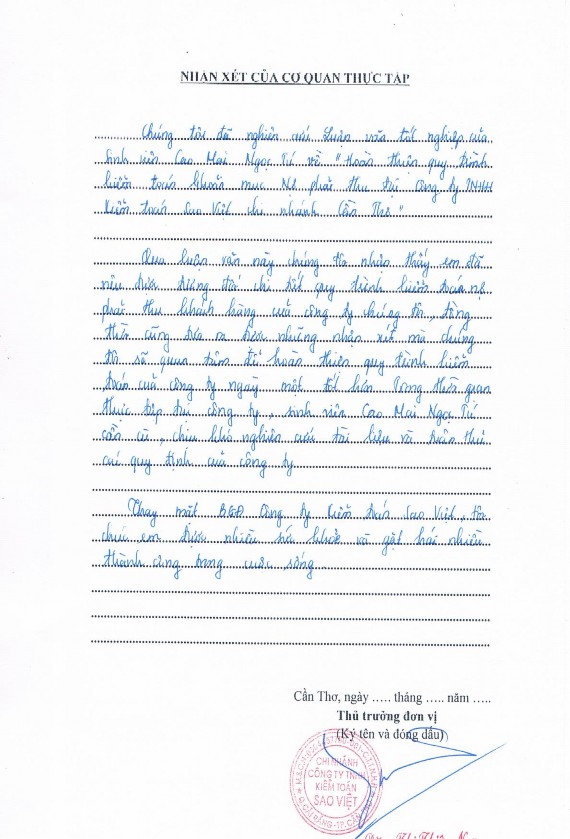 NHẬN XÉT CỦA CƠ QUAN THỰC TẬP
Chúng tôi đã nghiên cứu Luận văn tốt nghiệp của
sinh viên Cao Mai Ngọc Tú về "Hoàn thiện quy trình
kiểm toán khoản mục Nợ phải thu tại Công ty TNHH
Kiểm toán Sao Việt chi nhánh Cần Thơ"
Qua luận văn này chúng tôi nhận thấy em đã
nêu được tương đối chi tiết quy trình kiểm toán nợ
phải thu khách hàng của công ty chúng tôi, đồng
thời cũng đưa ra được những nhận xét mà chúng
tôi sẽ quan tâm để hoàn thiện quy trình kiểm
toán của công ty ngày một tốt hơn. Trong thời gian
thực tập tại công ty, sinh viên Cao Mai Ngọc Tú
cần cù, chịu khó nghiên cứu tài liệu và tuân thủ
các quy định của công ty
Thay mặt BGĐ Công ty Kiểm toán Sao Việt, tôi
chúc em được nhiều sức khỏe và gặt hái nhiều
thành công trong cuộc sống.
Cần Thơ, ngày ..... tháng ..... năm .....
Thủ trưởng đơn vị
(Ký tên và đóng dấu)
CHI NHÁNH
CÔNG TY TNHH
KIỂM TOÁN
SAO VIỆT